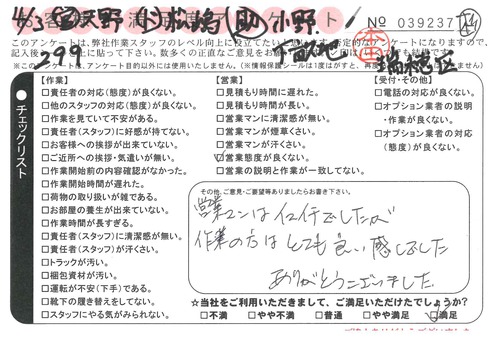 4/3
天野
松嶋
助
小野
No 039237
このアンケートは、弊社作業スタッフのレベル向上に役立てたいと思います。
399
瑞穂区
チェックリスト
【作業】
□責任者の対応(態度)が良くない。
□他のスタッフの対応(態度)が良くない。
□作業を見ていて不安がある。
□責任者(スタッフ)に好感が持てない。
□お客様への挨拶が出来ていない。
□ご近所への挨拶・気遣いが無い。
□作業開始前の内容確認がなかった。
□作業開始時間が遅れた。
□荷物の取り扱いが雑である。
□お部屋の養生が出来ていない。
□作業時間が長すぎる。
□責任者(スタッフ)に清潔感が無い。
□責任者(スタッフ)が汗くさい。
□トラックが汚い。
□梱包資材が汚い。
□運転が不安(下手)である。
□靴下の履き替えをしてない。
□スタッフにやる気がみられない。
【営業】
□見積もり時間に遅れた。
□見積もり時間が長い。
□営業マンに清潔感が無い。
□営業マンが煙草くさい。
□営業マンが汗くさい。
☑営業態度が良くない。
□営業の説明と作業が一致してない。
【受付・その他】
□電話の対応が良くない。
□オプション業者の説明・作業が良くない。
□オプション業者の対応(態度)が良くない。
その他、ご意見・ご要望等ありましたらお書き下さい。
営業マンはイマイチでしたが
作業の方はとても良い感じでした
ありがとうございました
☆当社をご利用いただきまして、ご満足いただけたでしょうか?
□不満 □やや不満 □普通 □やや満足 ☑満足